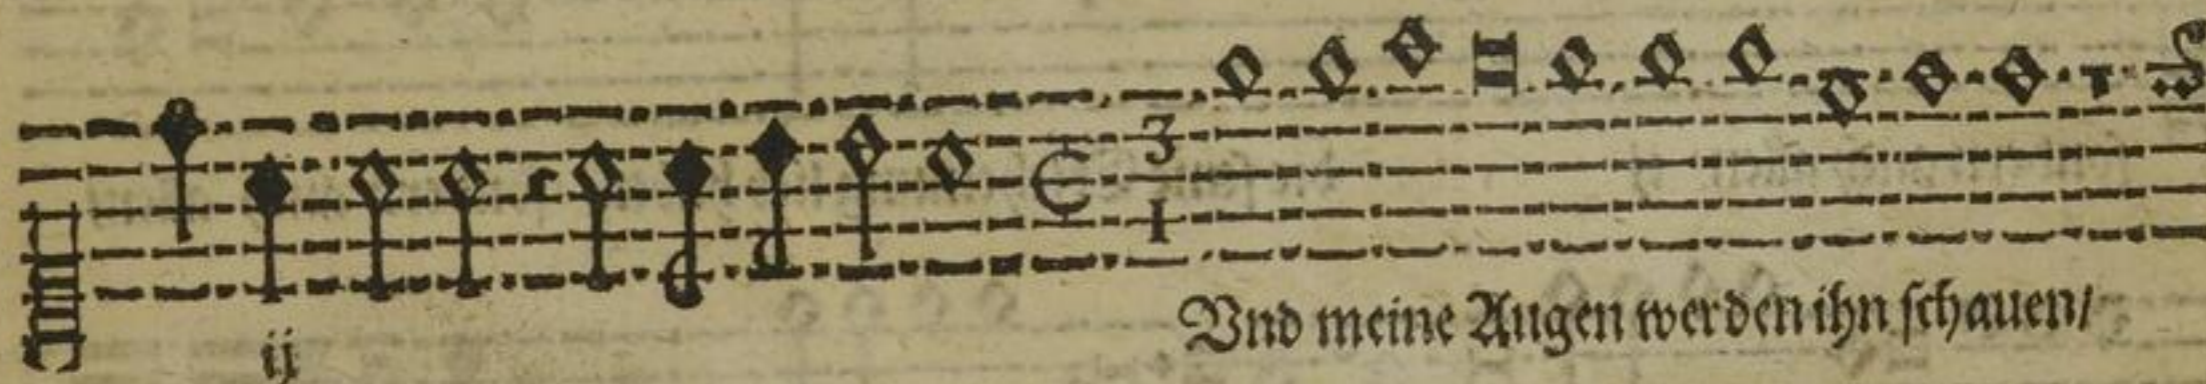 3
1
ij
Vnd meine Augen werden ihn schauen/